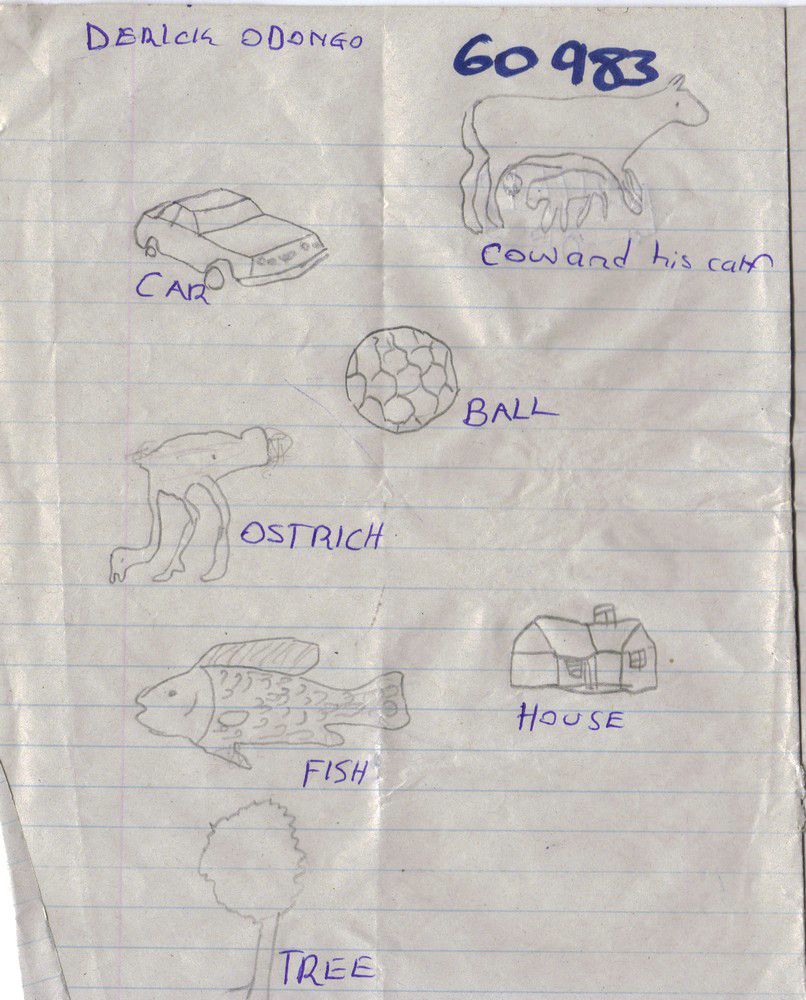 DERICK ODONGO
60983
COW and his calf
CAR
BALL
OSTRICH
HOUSE
FISH
TREE